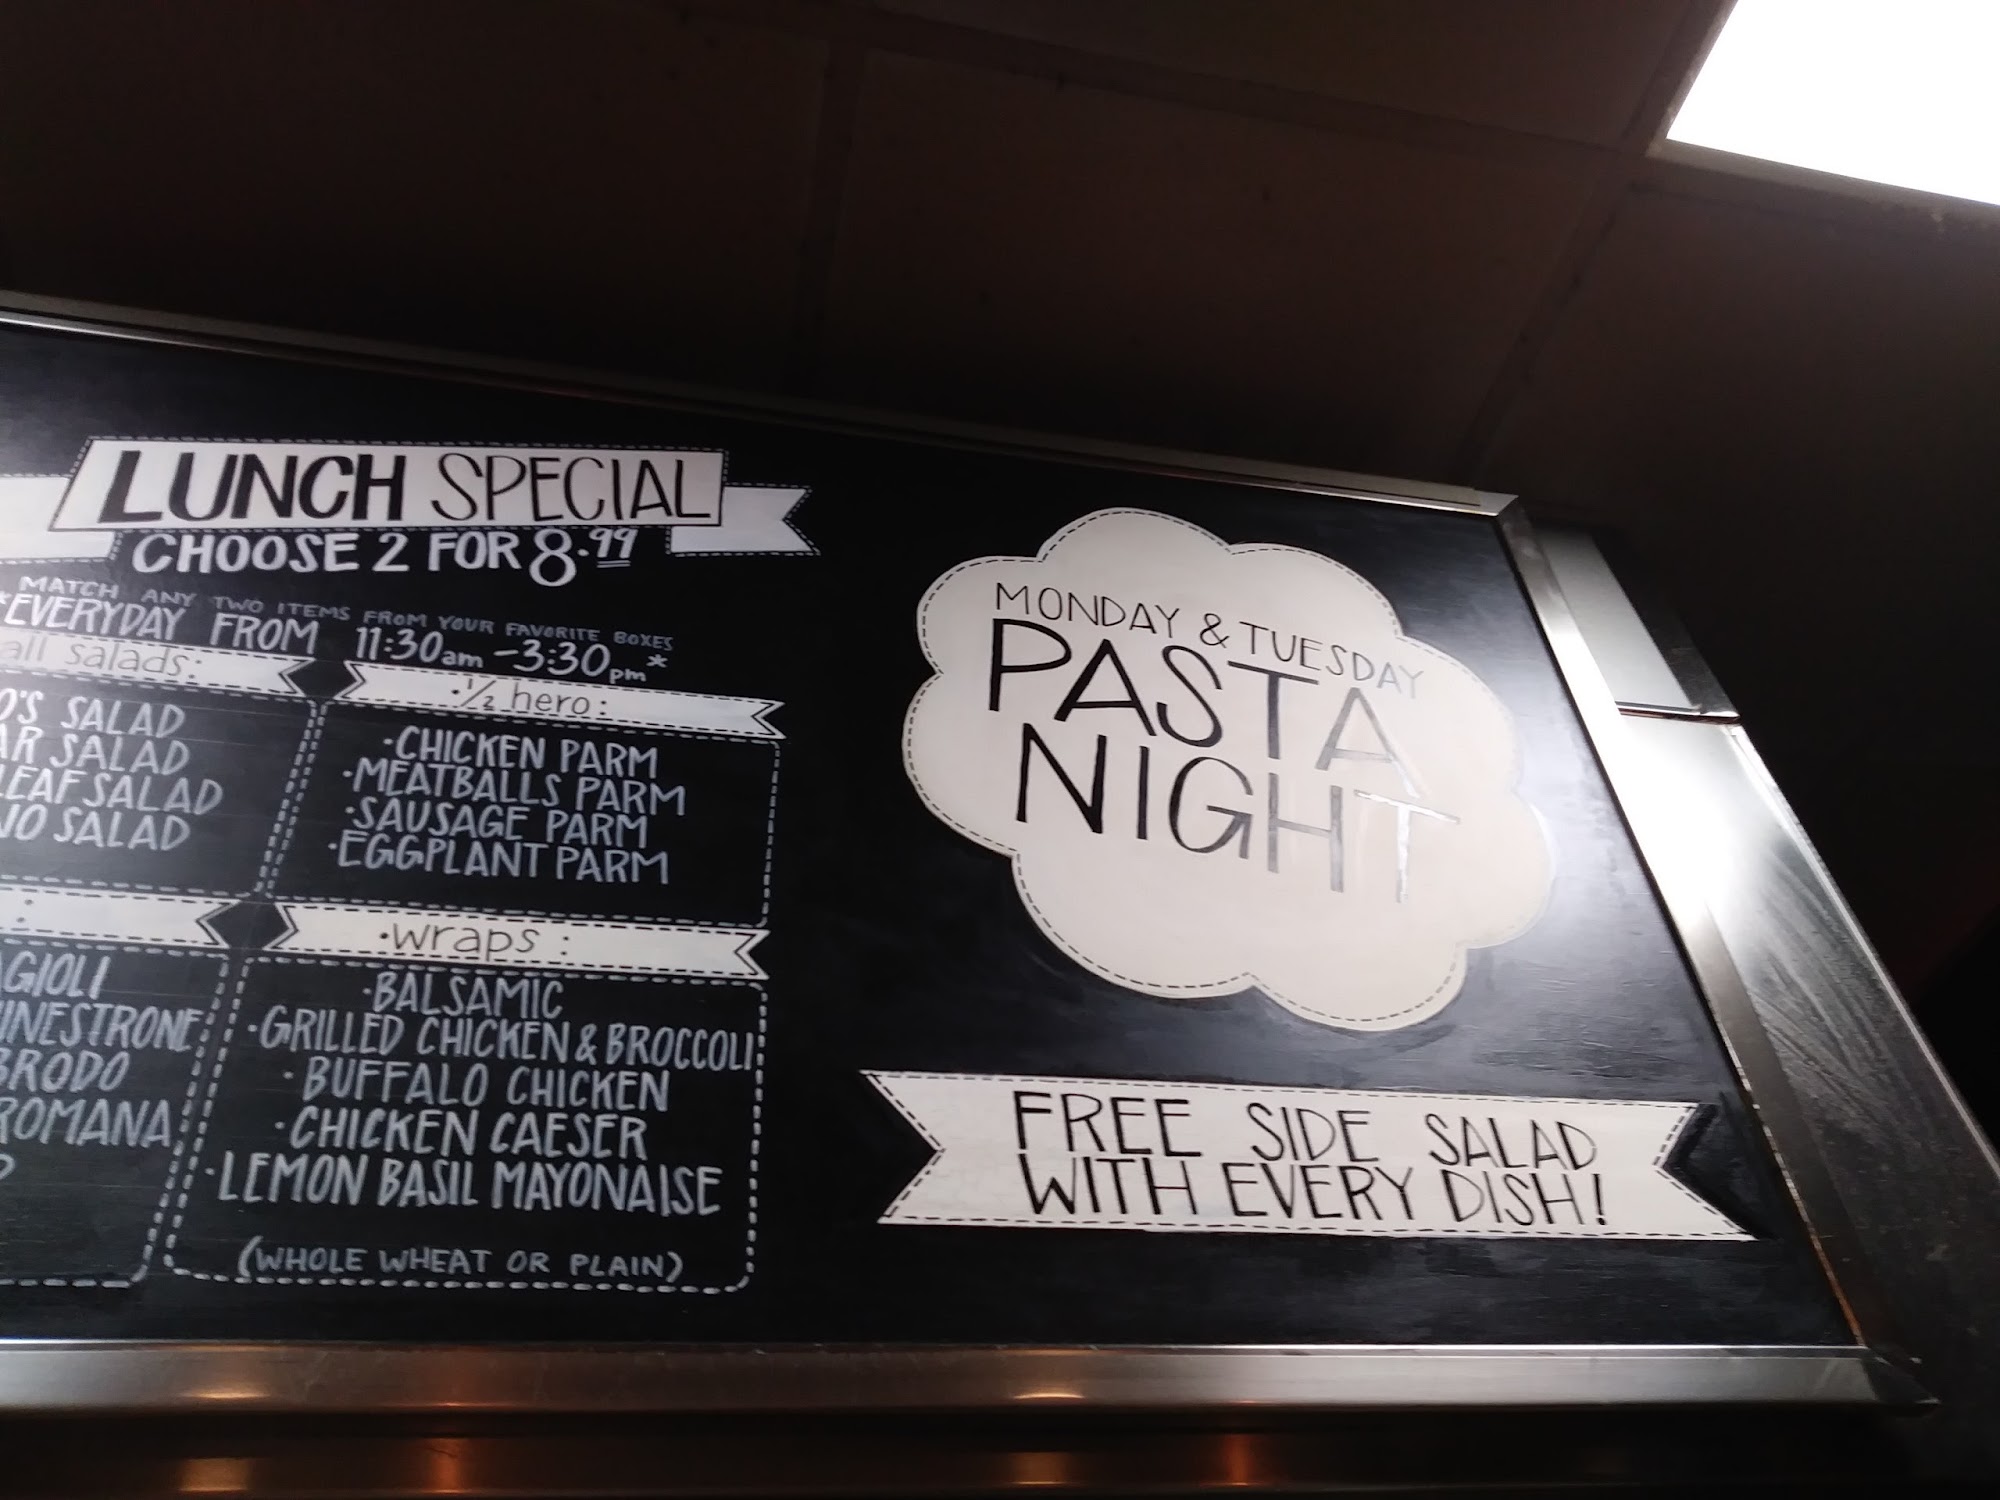 LUNCH SPECIAL
CHOOSE 2 FOR 8.99
MATCH ANY TWO ITEMS FROM YOUR FAVORITE BOXES
*EVERYDAY FROM 11:30am -3:30pm*
all salads:
O'S SALAD
AR SALAD
LEAF SALAD
NO SALAD
·1/2 hero:
·CHICKEN PARM
·MEATBALLS PARM
·SAUSAGE PARM
·EGGPLANT PARM
:
AGIOLI
INESTRONE
BRODO
ROMANA
·wraps:
·BALSAMIC
·GRILLED CHICKEN & BROCCOLI
·BUFFALO CHICKEN
·CHICKEN CAESER
·LEMON BASIL MAYONAISE
(WHOLE WHEAT OR PLAIN)
MONDAY & TUESDAY
PASTA
NIGHT
FREE SIDE SALAD
WITH EVERY DISH!